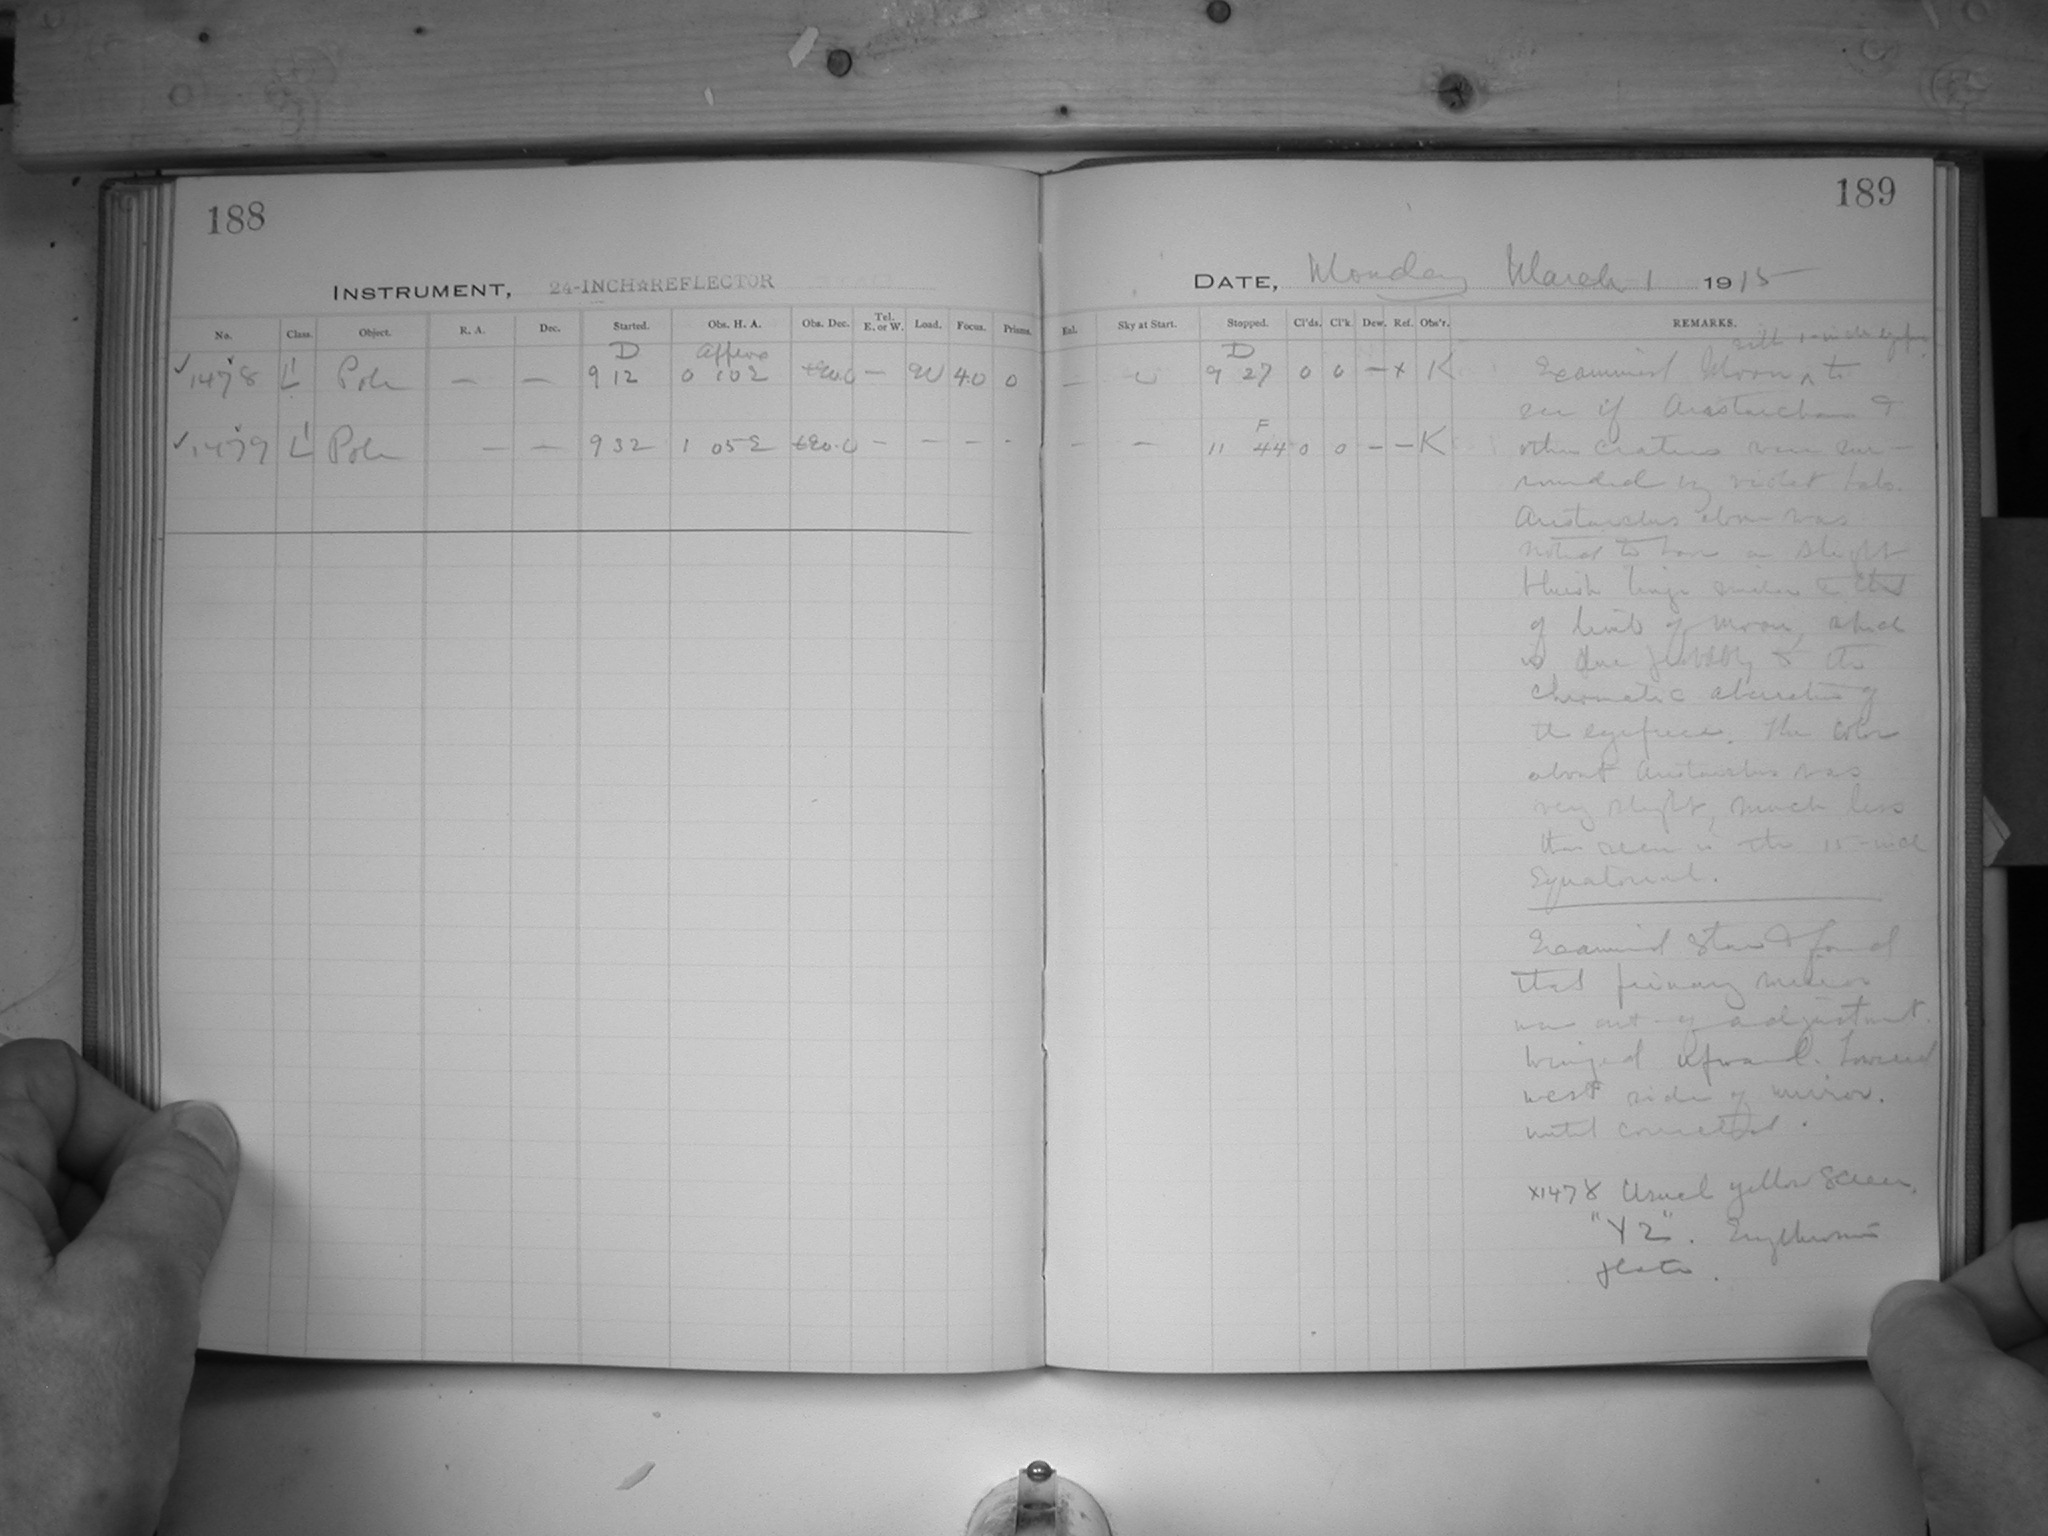 188
INSTRUMENT, 24-INCH☆REFLECTOR
No. Class. Object. R. A. Dec. Started. Obs. H. A. Obs. Dec. Tel. E. or W. Load. Focus. Prisms.
D approx
✓ 1478 L' Pole — — 9 12 0 102 +90.0 — W 4.0 0
✓ 1479 L' Pole — — 9 32 1 052 +90.0 — — — -
189
DATE, Monday March 1 1915
Exl. Sky at Start. Stopped. Cl'ds. Cl'k. Dew. Ref. Obs'r. REMARKS.
D
— 9 27 0 0 — x K
F
— — 11 44 0 0 — — K
with 1-inch eyep.
Examined Moon ^ to
see if Aristarchus &
other craters were sur-
rounded by violet halo.
Aristarchus alone was
noted to have a slight
bluish tinge similar to that
of limb of moon, which
is due probably to the
chromatic aberration of
the eyepiece. The color
about Aristarchus was
very slight, much less
than seen in the 15-inch
Equatorial.
Examined star & found
that primary mirror
was out of adjustment.
winged upward. Lowered
west side of mirror.
until corrected.
x1478 Usual yellow screen,
"Y2". Erythrosin
plate.